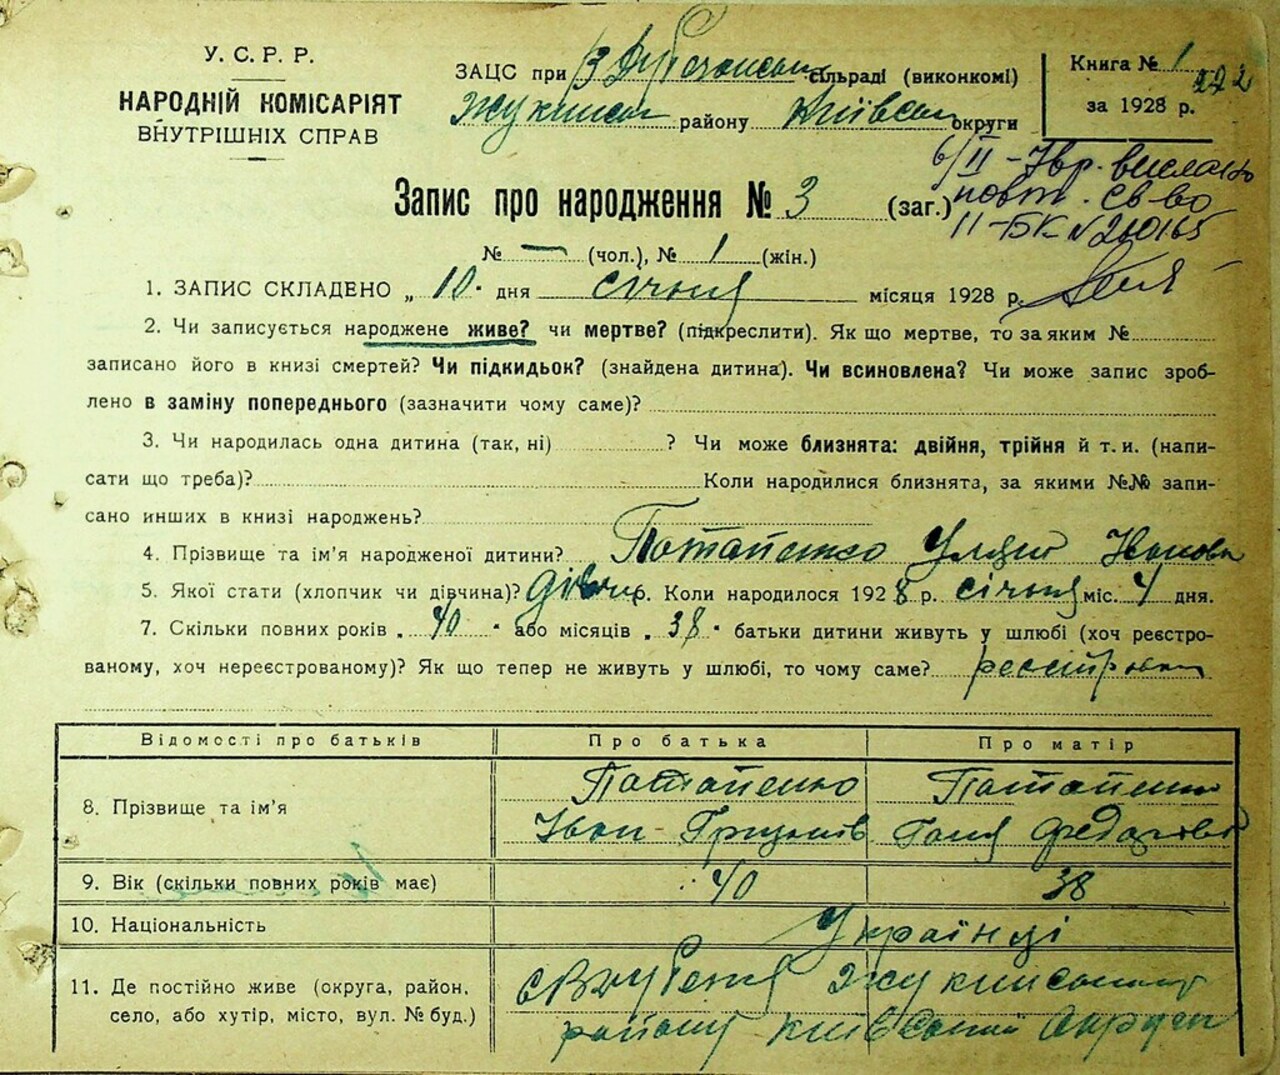 У.С.Р.Р.
НАРОДНІЙ КОМІСАРІЯТ
ВНУТРІШНІХ СПРАВ
ЗАЦС при В Дубечанськ сільраді (виконкомі)
Жукинськ району Київськ округи
Книга № 1
222
за 1928 р.
6/II - вислано
повт. св-во
II-БК № 260165
Запис про народження № 3 (заг.)
№ — (чол.), № 1 (жін.)
1. ЗАПИС СКЛАДЕНО „ 10 " дня січня місяця 1928 р.
2. Чи записується народжене живе? чи мертве? (підкреслити). Як що мертве, то за яким №
записано його в книзі смертей? Чи підкидьок? (знайдена дитина). Чи всиновлена? Чи може запис зроб-
лено в заміну попереднього (зазначити чому саме)?
3. Чи народилась одна дитина (так, ні) ? Чи може близнята: двійня, трійня й т. и. (напи-
сати що треба)? Коли народилися близнята, за якими №№ запи-
сано инших в книзі народжень?
4. Прізвище та ім'я народженої дитини? Потапенко Іванова
5. Якої стати (хлопчик чи дівчина)? дівчи р. Коли народилося 1928 р. січня міс. 4 дня.
7. Скільки повних років „ 40 " або місяців „ 38 " батьки дитини живуть у шлюбі (хоч реєстро-
ваному, хоч нереєстрованому)? Як що тепер не живуть у шлюбі, то чому саме?
Відомості про батьків Про батька Про матір
8. Прізвище та ім'я Потапенко Потапенко
Іван Грицьків Ганя Федорова
9. Вік (скільки повних років має) 40 38
10. Національність Українці
11. Де постійно живе (округа, район, Жукинського
село, або хутір, місто, вул. № буд.) району Київської Округи